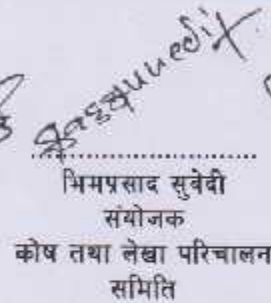 भिमप्रसाद सुवेदी
संयोजक
कोष तथा लेखा परिचालन
समिति